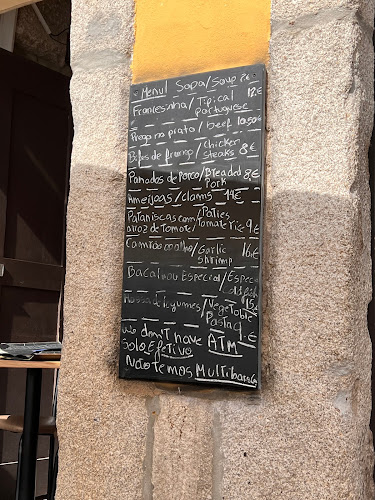 Menu! Sopa/Soup 2€
Francesinha/Tipical 12€
portuguese
Prego no prato/beef 10.50€
Bifes de frango/Chicken
Steaks 8€
Panados de Porco/Breaded 8,€
Pork
Ameijoas/clamns 14€
Pataniscas com/Paties
arroz de tomate/Tomate rice 9€
Camrão ao alho/Garlic 16€
Shrimp
Bacalhau Especial/Especi
15€
Massa de legumes/Vegetable
Pasta 9.€
We don't have ATM
Solo Efetivo
Não temos Multibanco